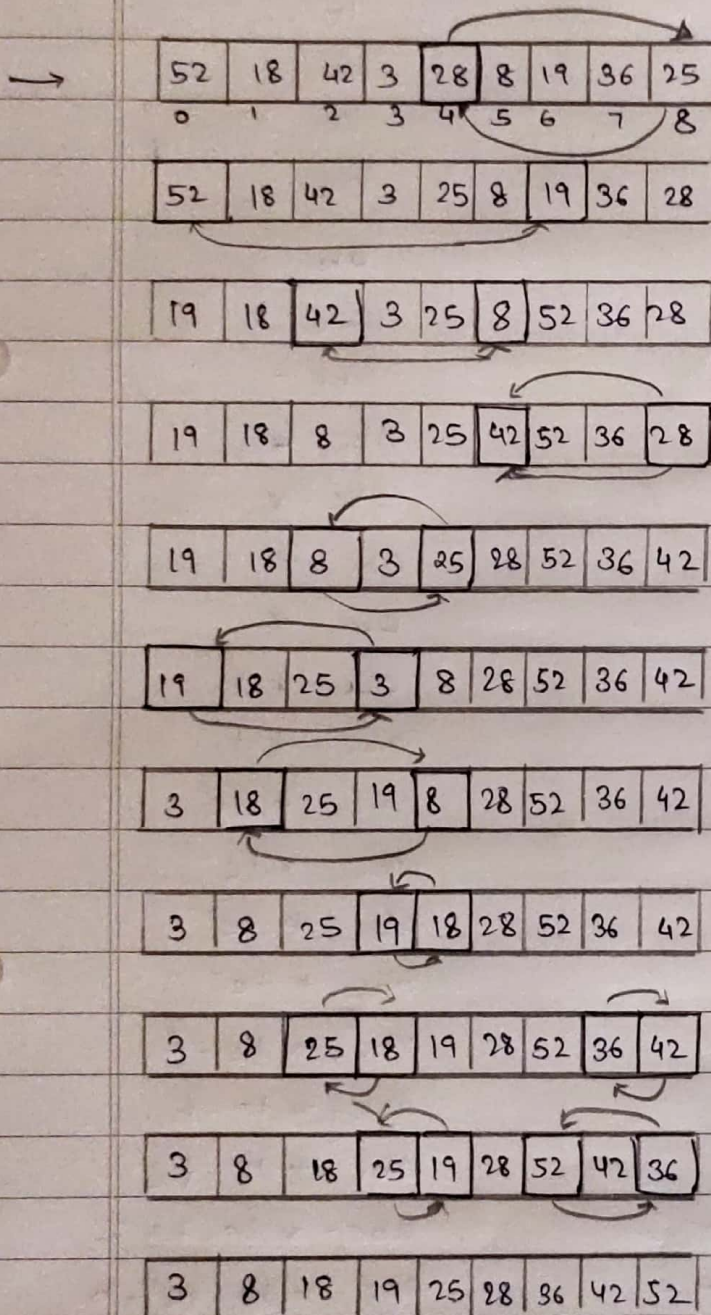 52 18 42 3 28 8 19 36 25
0 1 2 3 4 5 6 7 8
52 18 42 3 25 8 19 36 28
19 18 42 3 25 8 52 36 28
19 18 8 3 25 42 52 36 28
19 18 8 3 25 28 52 36 42
19 18 25 3 8 28 52 36 42
3 18 25 19 8 28 52 36 42
3 8 25 19 18 28 52 36 42
3 8 25 18 19 28 52 36 42
3 8 18 25 19 28 52 42 36
3 8 18 19 25 28 36 42 52